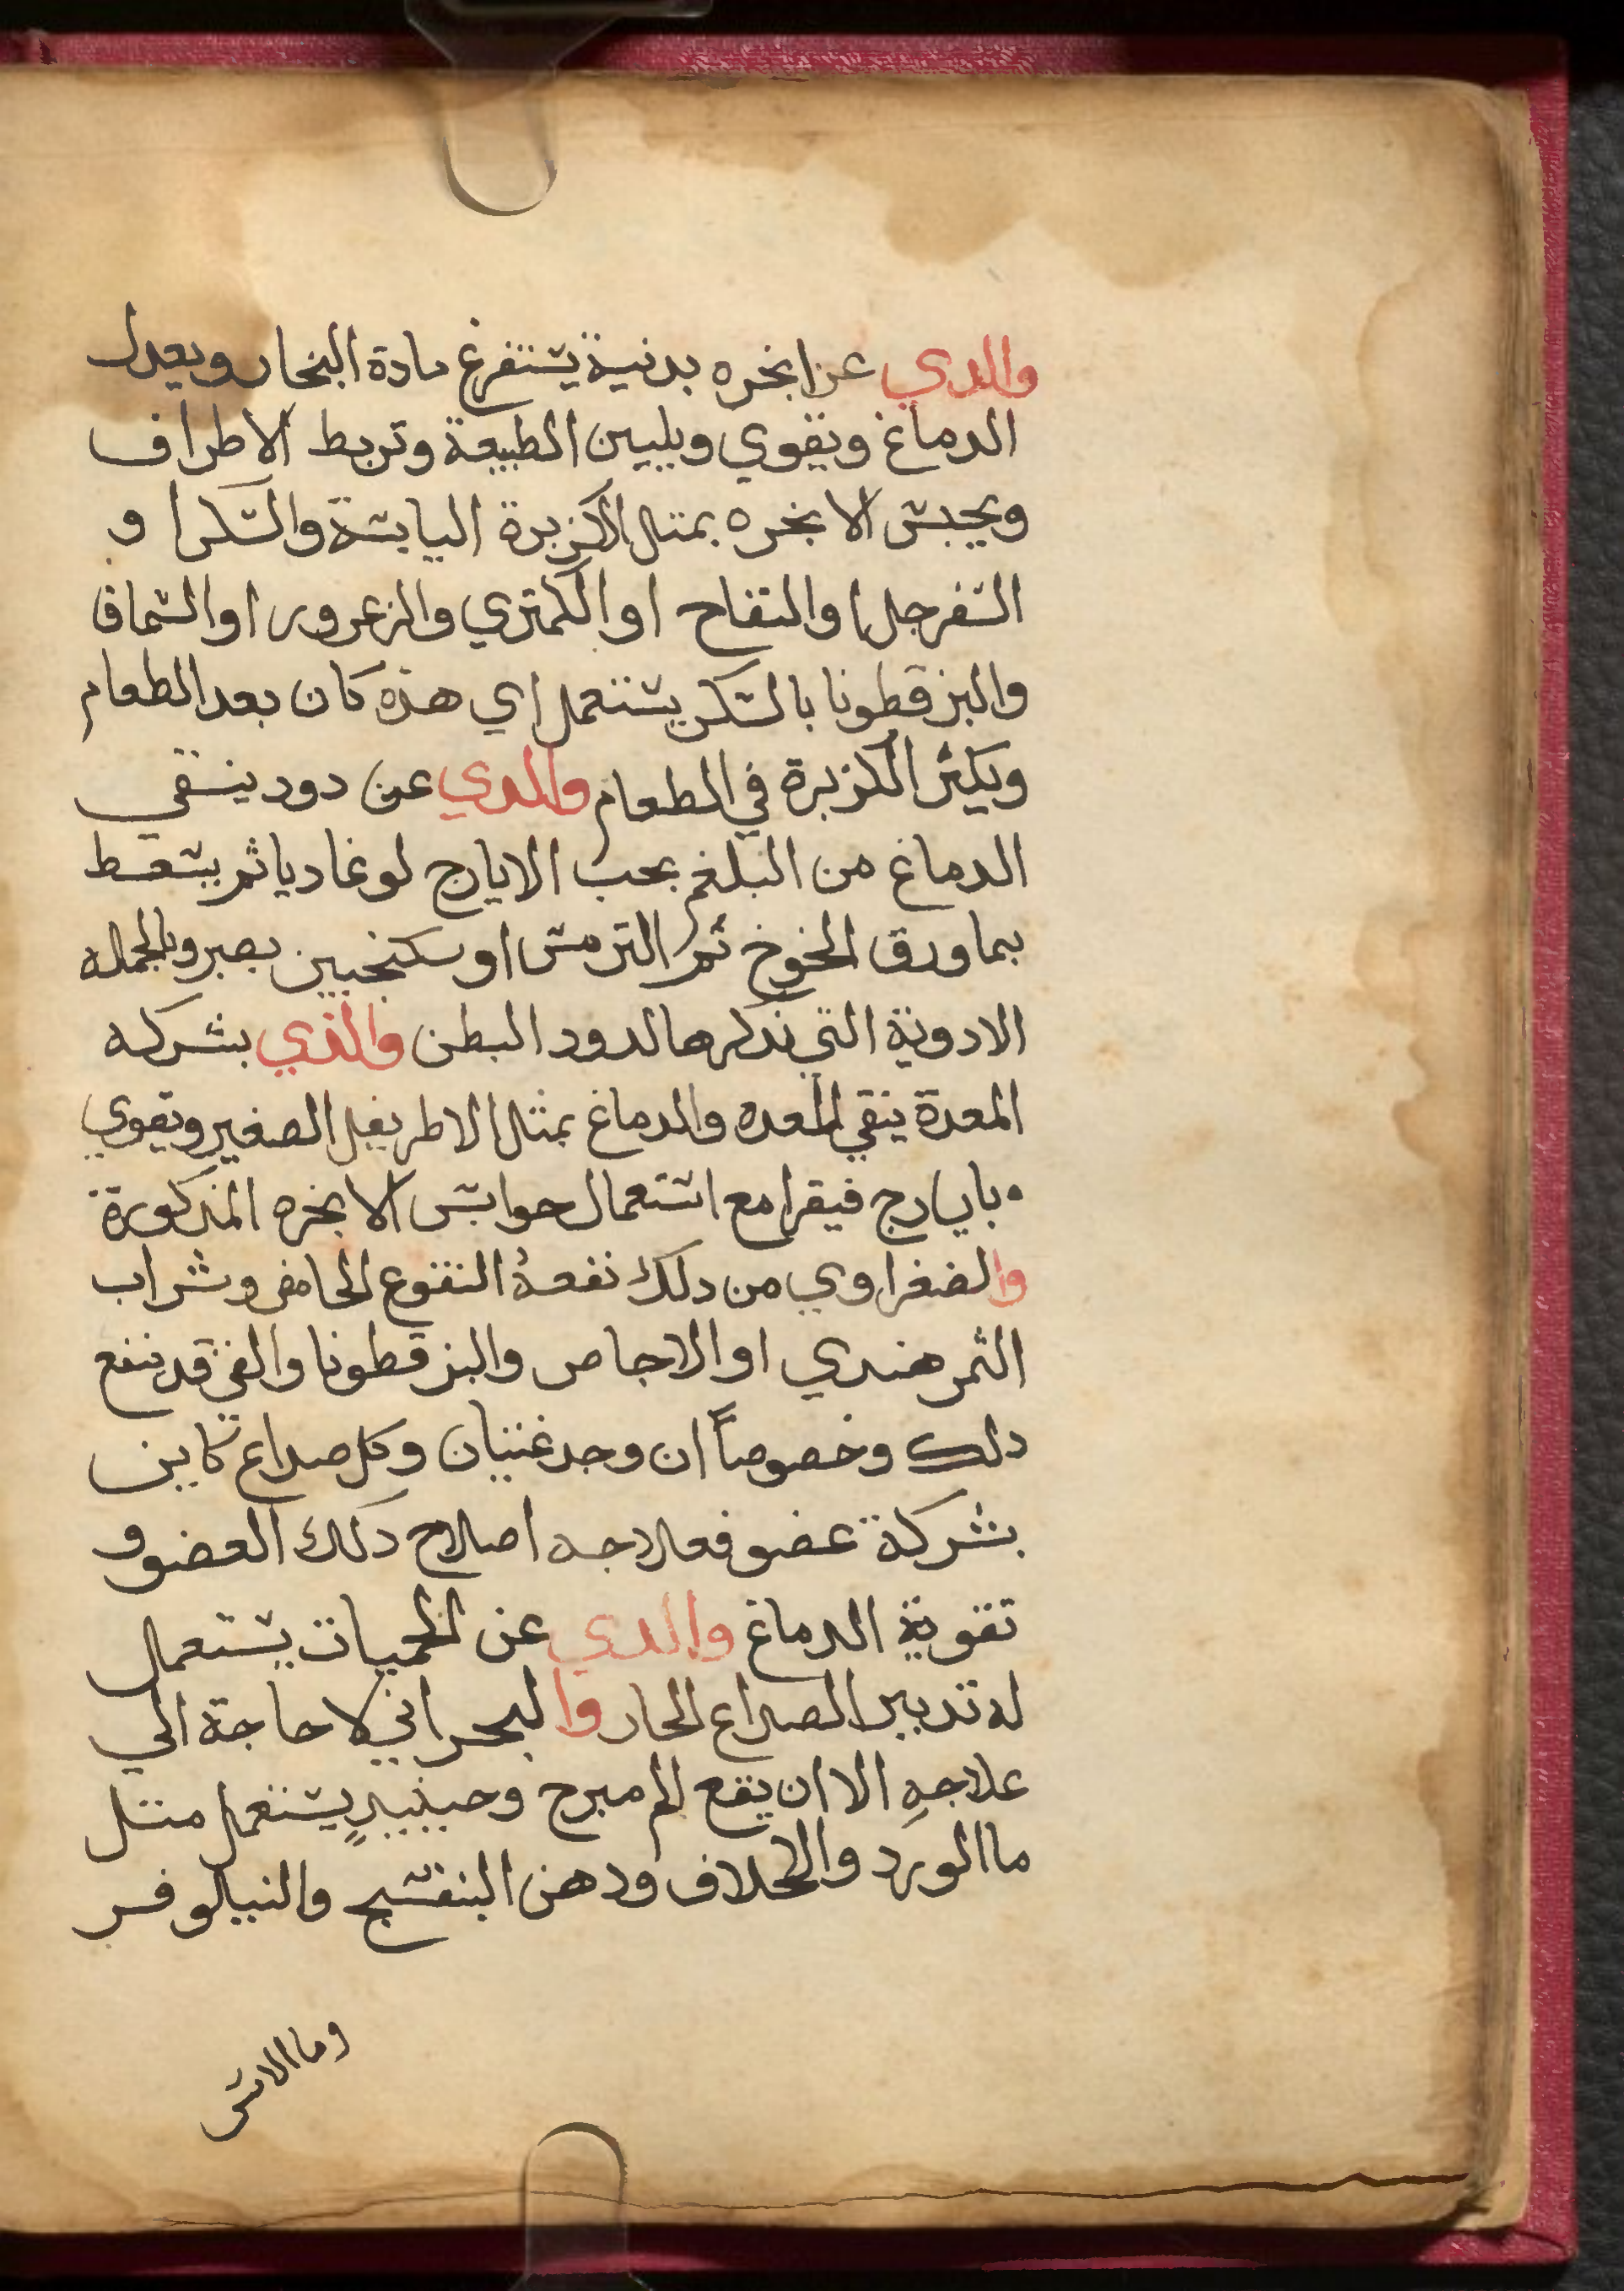 والدي عن ابخره بدنية يستفرغ مادة البخار ويعدل
الدماغ ويقوي ويليين الطبيعة وتربط الاطراف
ويحبس الابخره بمثال الكزبرة اليابسة والسكر او
السفرجل او التفاح او الكمتري والزعرور او السماق
والبزقطونا بالسكر يستعمل اي هذه كان بعد الطعام
ويكثر الكزبرة في الطعام والدي عن دود ينقي
الدماغ من البلغم بحب الايارج لوغاديا ثم يسعط
بما ورق الخوخ ثم الترمس او سكنجبين بصبر وبالجمله
الادوية التي نذكرها لدود البطن والذي بشركه
المعدة ينقي المعده والدماغ بمثال الاطريفل الصغير ويقوي
بايارج فيقرا مع استعمال حوابس الابخره المذكورة
والصفراوي من دلك نفعهُ النقوع الحامض وشراب
الثمر هندي او الاجاص والبزقطونا والقي قد ينفع
دلك وخصوصاً ان وجد غتيان وكل صداع كاين
بشركة عضو فعلاجه اصلاح دلك العضو و
تقوية الدماغ والدي عن الحميات يستعمل
له تدبير الصداع الحار والبحراني لا حاجة الي
علاجهِ الا ان يقع الم مبرح وحينييدٍ يستعمل متل
ما الورد والخلاف ودهن البنفسج والنيلوفر
وما الاس